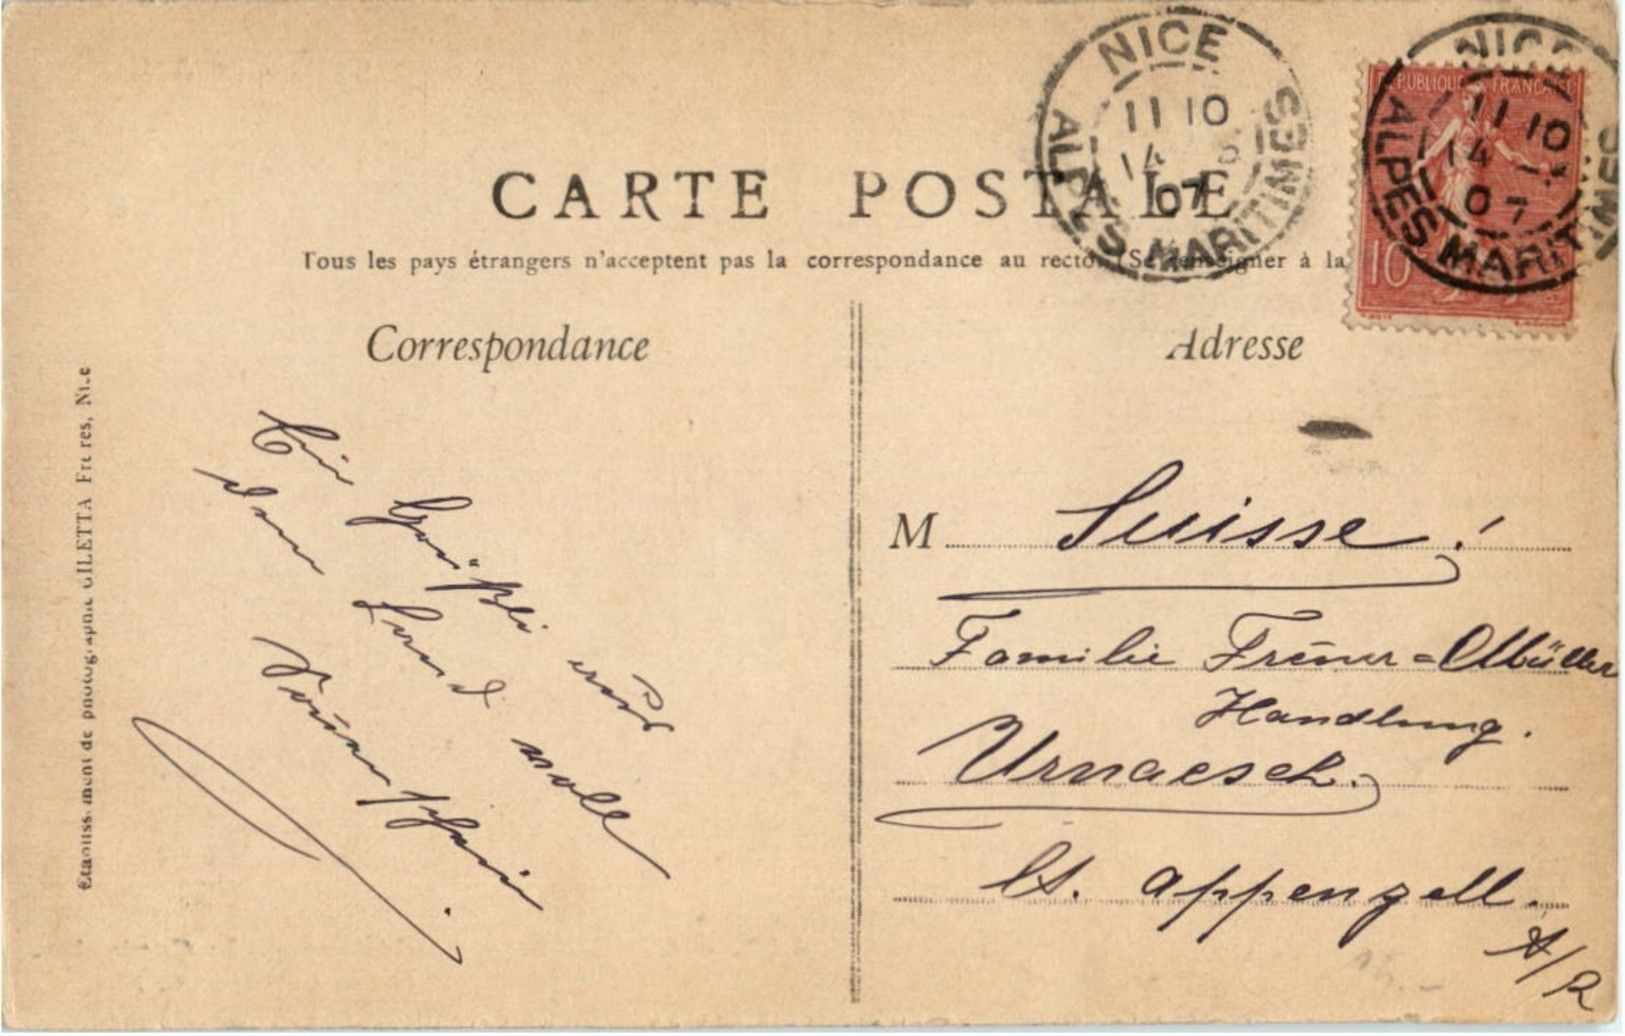 CARTE POSTALE
Tous les pays étrangers n'acceptent pas la correspondance au recto. (Se renseigner à la
Correspondance
Adresse
NICE
11 10
14
07
ALPES MARITIMES
NICE
11 10
14
07
ALPES MARITIMES
RÉPUBLIQUE FRANÇAISE
10
Etablissement de photographie GILETTA Frères, Nice
Ein Grüßli aus
dem Land voll
Sonnenschein
M Suisse!
Familie Frener=Müller
Handlung.
Urnaesch.
Ct. Appenzell.
A/R